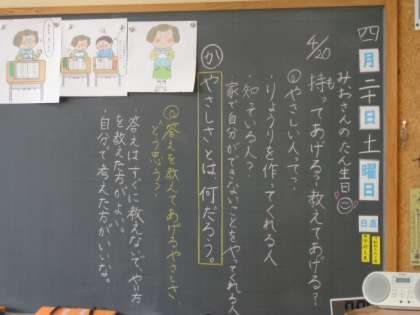 四月二十日土曜日
日直
みおさんのたん生日
4/20 持ってあげる?教えてあげる?
も
◎やさしい人って?
・りょうりを作ってくれる人
・知っている人?
家で自分ができないことをやってくれる人
か
やさしさとは、何だろう。
◎答えを教えてあげるやさしさ、
どう思う?
・答えはすぐに教えないで、やり方
を教えた方がよい。
・自分で考えた方がいいな。